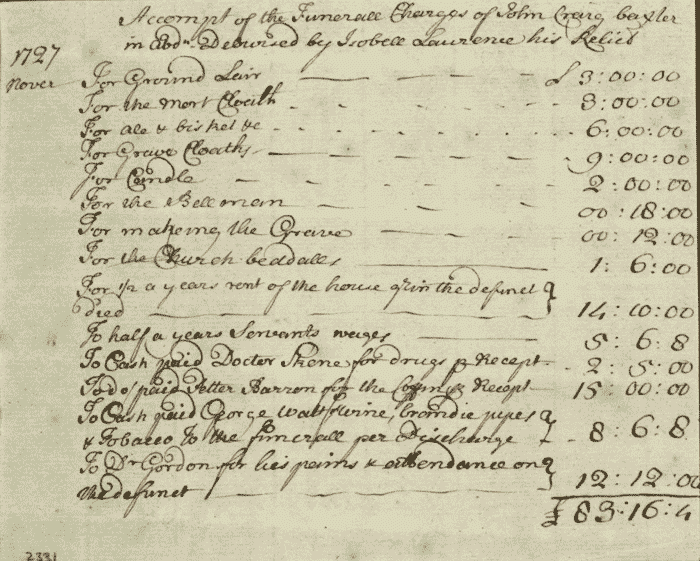 Accompt of the Funerall Charges of John Craig baxter
in Abd: Debursed by Isobell Laurence his Relict
1727
Nover For Ground Lair £ 3:00:00
For the Mort Cloath 3:00:00
For ale & bisket &c 6:00:00
For Grave Cloaths 9:00:00
for Candle 2:00:00
For the Bellman 00:18:00
For makeing the Grave 00:12:00
For the Church beddalls 1:6:00
For 1/2 a years rent of the house qrin the defunct
died 14:10:00
To half a years Servants wages 5:6:8
To Cash paid Doctor Skene for drugs p Recept 2:5:00
To do/ paid Petter Barron for the Coffin p Recept 15:00:00
To Cash paid George Watt wine, brandie pipes
& Tobacco to the funerall per Discharge 8:6:8
To Dr Gordon for his pains & attendance on
the defunct 12:12:00
£ 83:16:4
2331